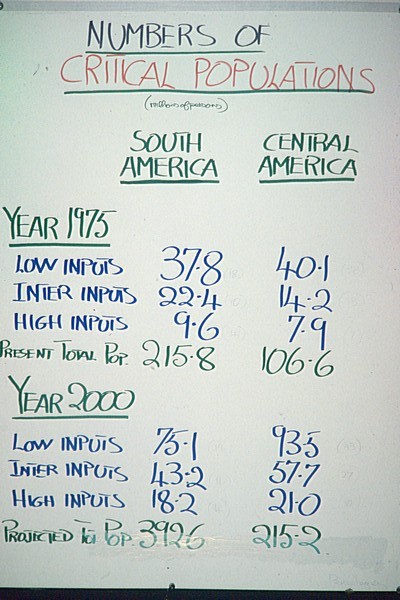 NUMBERS OF
CRITICAL POPULATIONS
(millions of persons)
SOUTH AMERICA CENTRAL AMERICA
YEAR 1975
LOW INPUTS 37.8 40.1
INTER INPUTS 22.4 14.2
HIGH INPUTS 9.6 7.9
PRESENT TOTAL POP. 215.8 106.6
YEAR 2000
LOW INPUTS 75.1 93.5
INTER INPUTS 43.2 57.7
HIGH INPUTS 18.2 21.0
PROJECTED TOT POP. 392.6 215.2